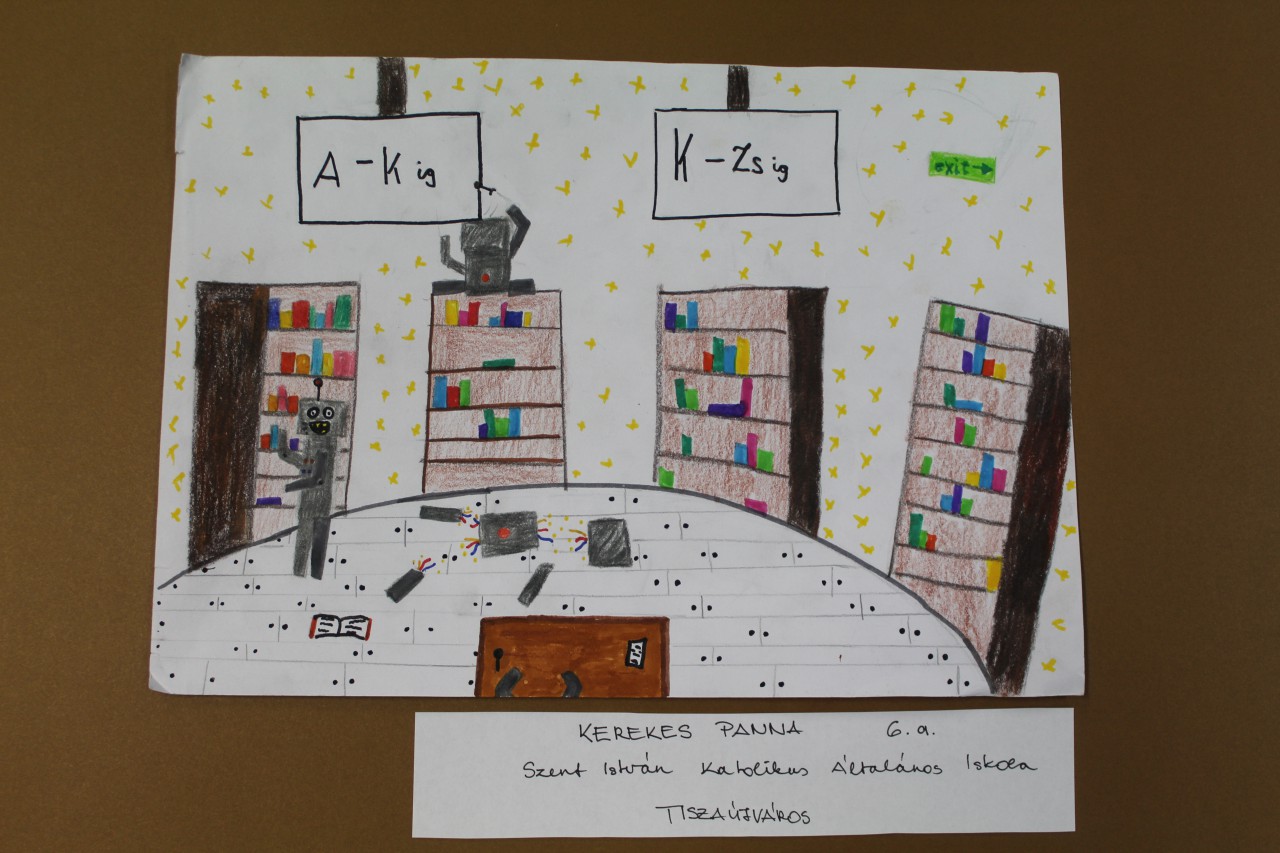 A - K ig
K - Zs ig
exit →
KEREKES PANNA 6. a.
Szent István Katolikus Általános Iskola
TISZAÚJVÁROS